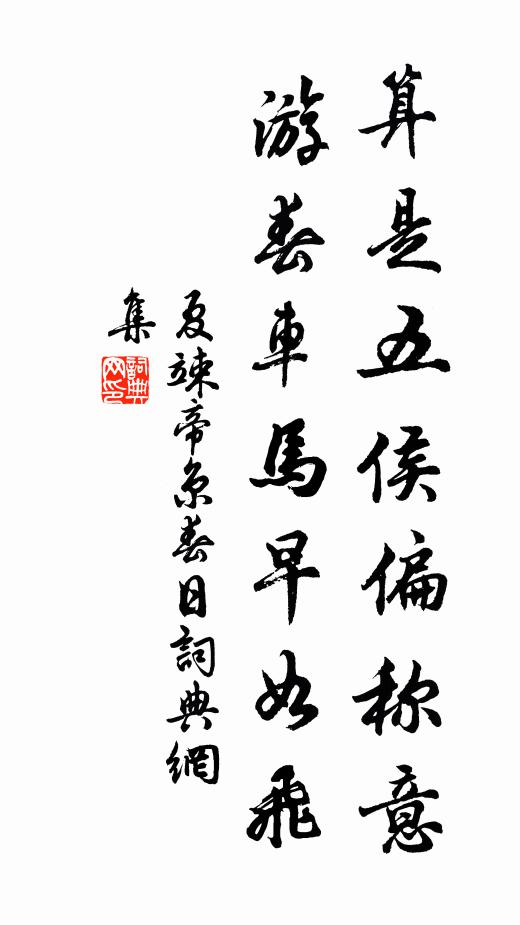 算是五侯偏称意
游春車馬早如飛
夏竦帝京春日詞典網
集
詞典网印